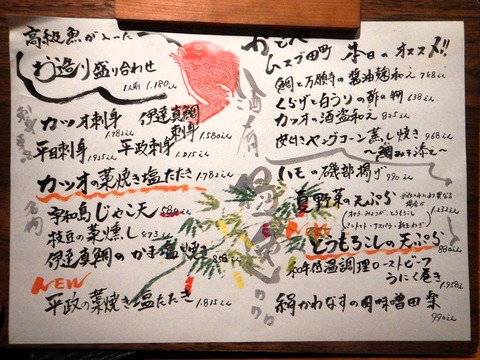 高級魚が入った
お造り盛り合わせ
1人前 1.180えん
カツオ刺身
1.782えん
伊達真鯛
刺身
1.580えん
平目刺身
1.925えん
平政刺身
1.815えん
カツオの藁焼き塩たたき
1.782えん
宇和島じゃこ天
580えん
枝豆の薫燻し 573えん
伊達真鯛のかま塩焼き
858えん
NEW
平政の藁焼き塩たたき 1.815えん
ムスブ田町 本日のオススメ!!
鯛と万願寺の醤油麹和え 748えん
くらげと白うりの酢の物 638えん
カツオの酒盗和え 825えん
皮付きヤングコーン蒸し焼き 968えん
〜鯛みそ添え〜
いもの磯部揚げ 990えん
夏野菜の天ぷら
1.232えん
とうもろこしの天ぷら
880えん
和牛低温調理ローストビーフ
うにく巻き 1.958えん
絹かわなすの肉味噌田楽
990えん